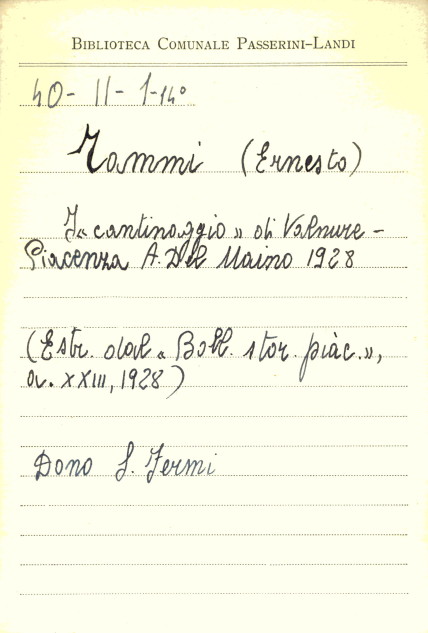 BIBLIOTECA COMUNALE PASSERINI-LANDI
40-II-1-14°
Tammi (Ernesto)
I « cantinaggio » di Valnure -
Piacenza A. Del Maino 1928
(Estr. dal « Boll. stor. piac. »,
a. XXIII, 1928)
Dono S. Fermi